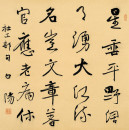 星垂平野闊
月湧大江流
名豈文章著
官應老病休
杜工部句 白蕉